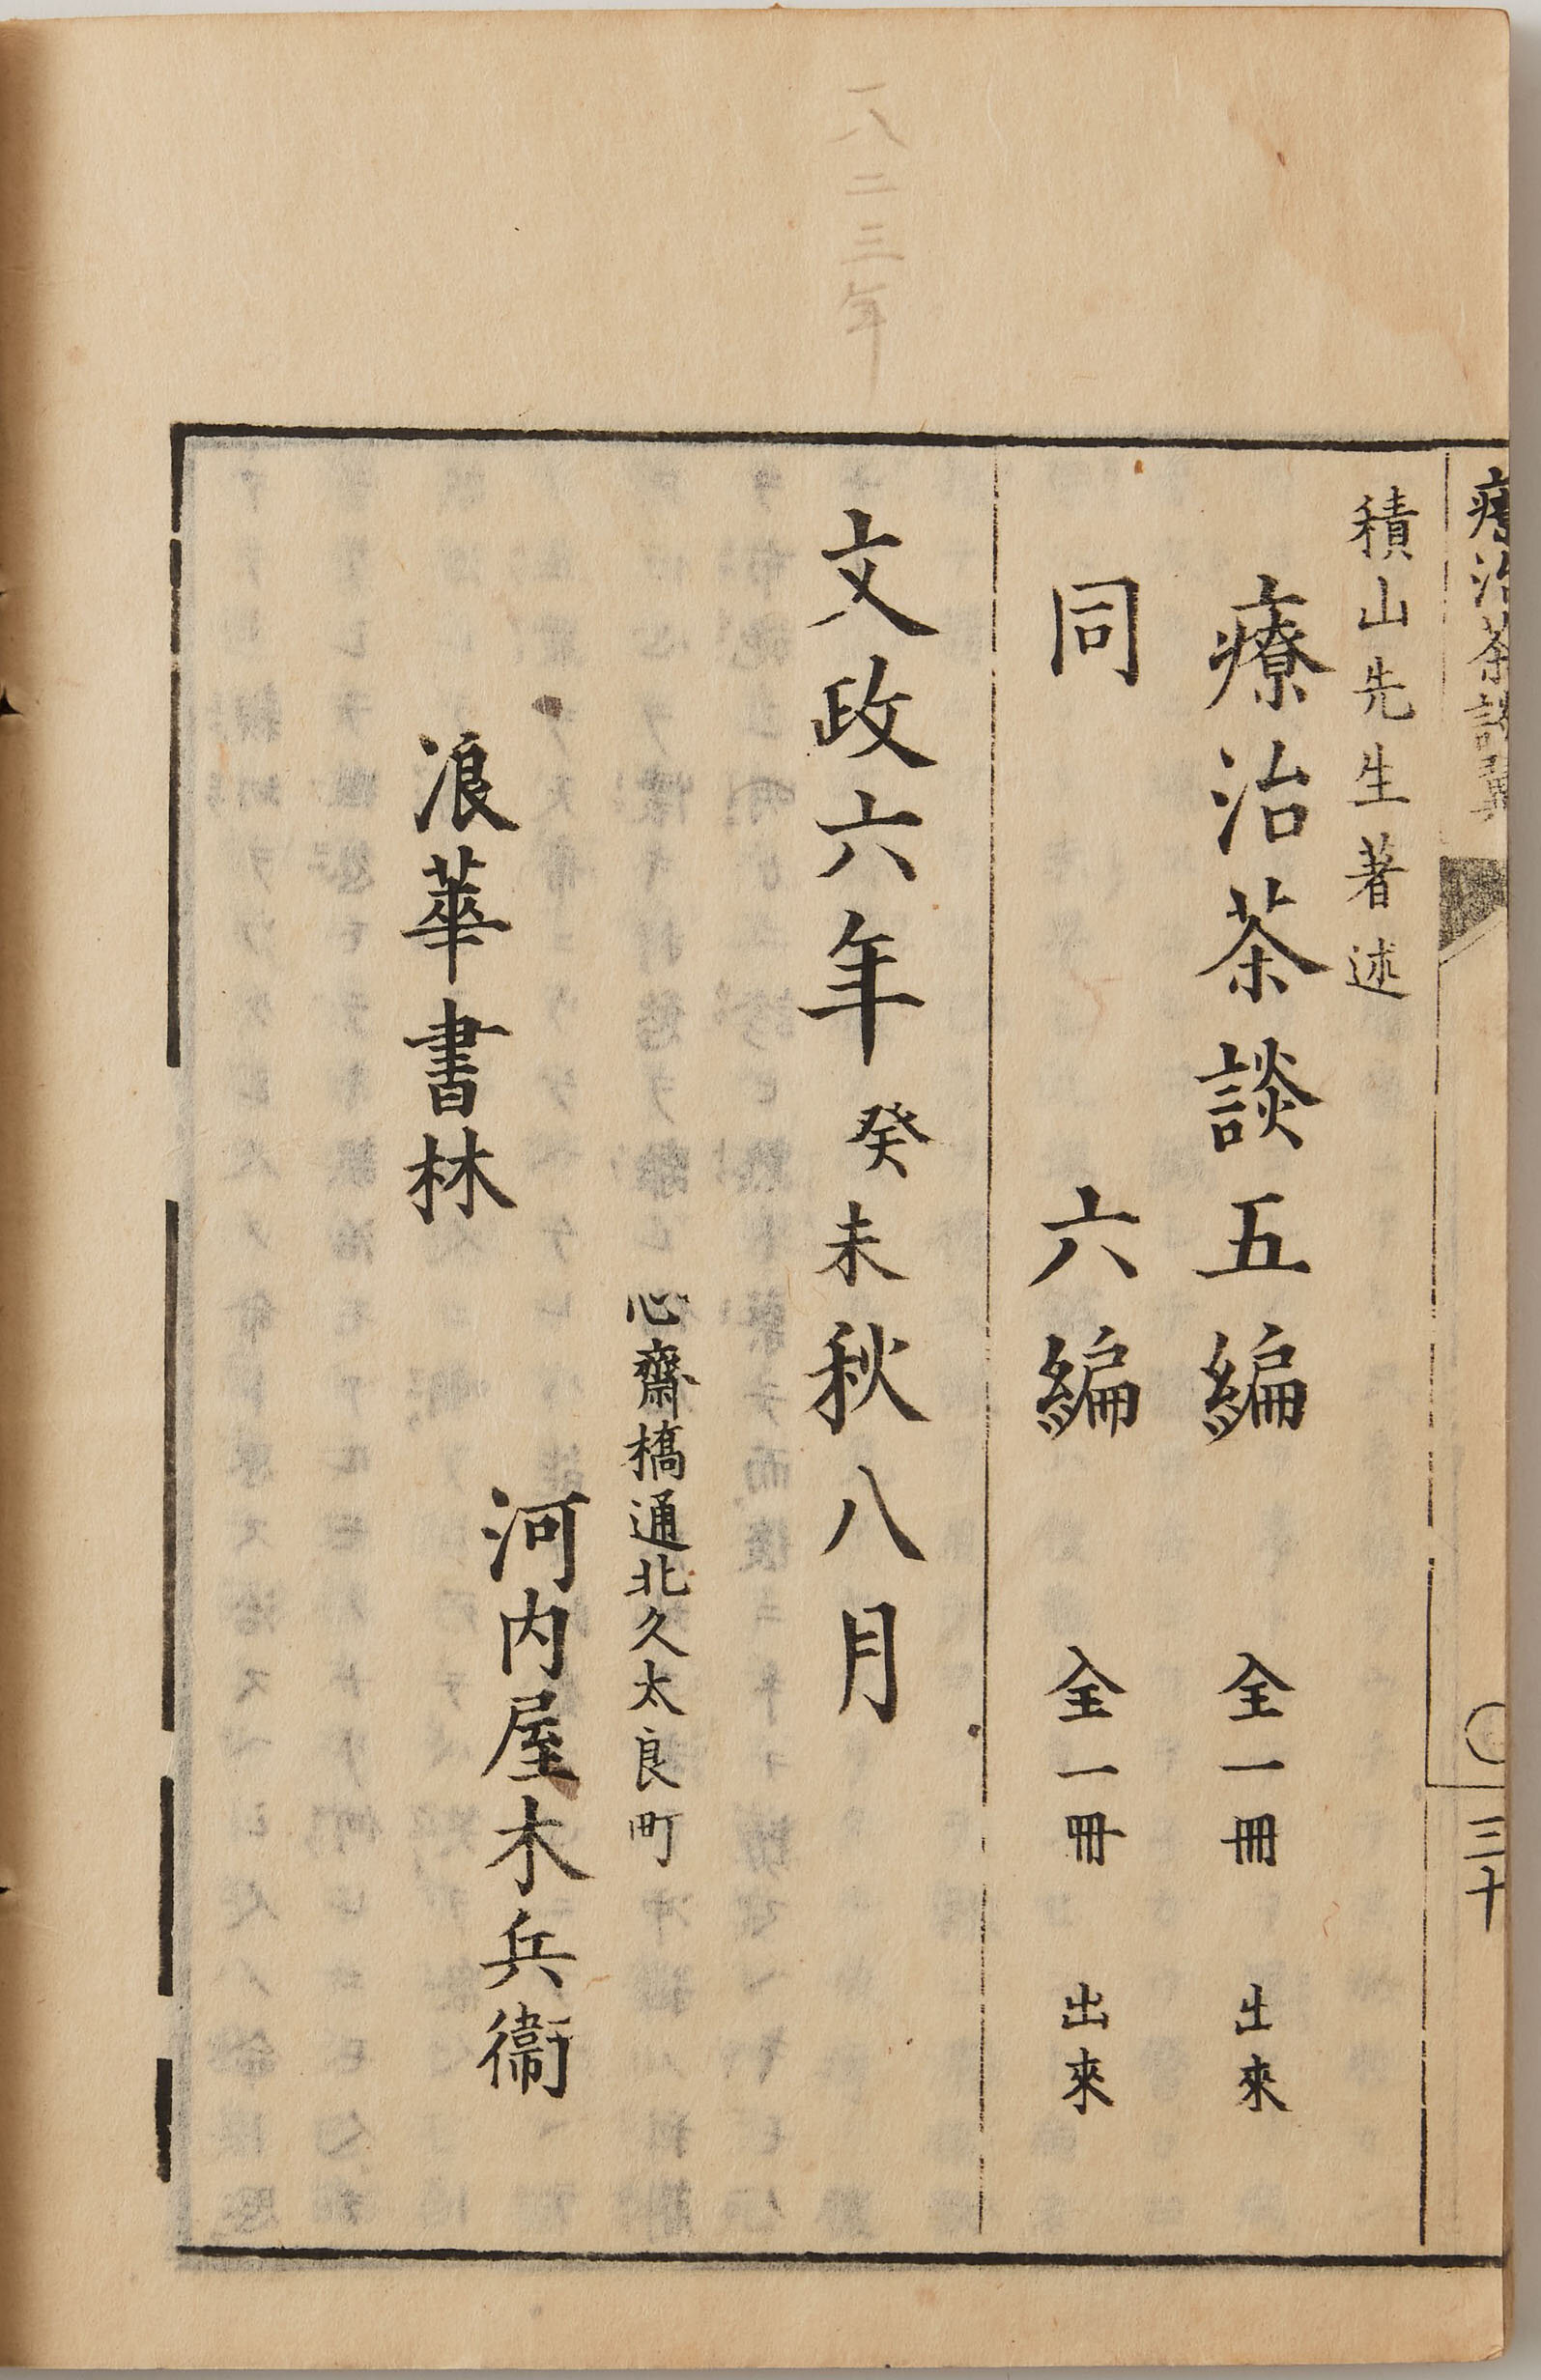 療治茶談
三十
積山先生著述
療治茶談五編 全一冊 出來
同 六編 全一冊 出來
一八二三年
文政六年癸未秋八月
心齋橋通北久太良町
浪華書林 河内屋木兵衞